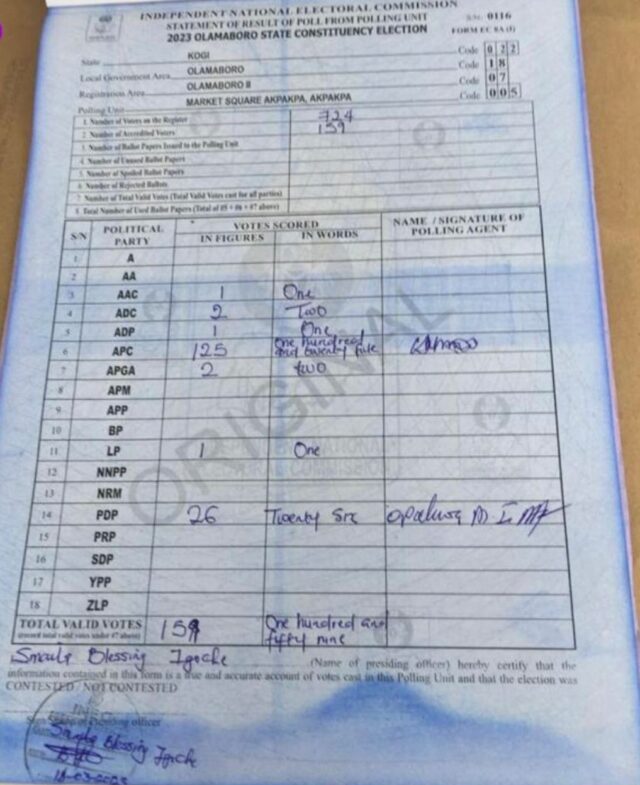 INDEPENDENT NATIONAL ELECTORAL COMMISSION
STATEMENT OF RESULT OF POLL FROM POLLING UNIT
S/N: 0116
FORM EC 8A (I)
2023 OLAMABORO STATE CONSTITUENCY ELECTION
State KOGI Code 022
Local Government Area OLAMABORO Code 18
Registration Area OLAMABORO II Code 07
Polling Unit MARKET SQUARE AKPAKPA, AKPAKPA Code 005
1. Number of Voters on the Register 724
2. Number of Accredited Voters 159
3. Number of Ballot Papers Issued to the Polling Unit
4. Number of Unused Ballot Papers
5. Number of Spoiled Ballot Papers
6. Number of Rejected Ballots
7. Number of Total Valid Votes (Total Valid Votes cast for all parties)
8. Total Number of Used Ballot Papers (Total of #5 + #6 + #7 above)
S/N POLITICAL PARTY VOTES SCORED NAME / SIGNATURE OF POLLING AGENT
IN FIGURES IN WORDS
1 A
2 AA
3 AAC 1 One
4 ADC 2 Two
5 ADP 1 One
6 APC 125 One hundred and twenty five
7 APGA 2 two
8 APM
9 APP
10 BP
11 LP 1 One
12 NNPP
13 NRM
14 PDP 26 Twenty Six
15 PRP
16 SDP
17 YPP
18 ZLP
ORIGINAL
TOTAL VALID VOTES 159 One hundred and fifty nine
(record total valid votes under #7 above)
Blessing (Name of presiding officer) hereby certify that the
information contained in this form is a true and accurate account of votes cast in this Polling Unit and that the election was
CONTESTED / NOT CONTESTED
INEC
officer
Blessing